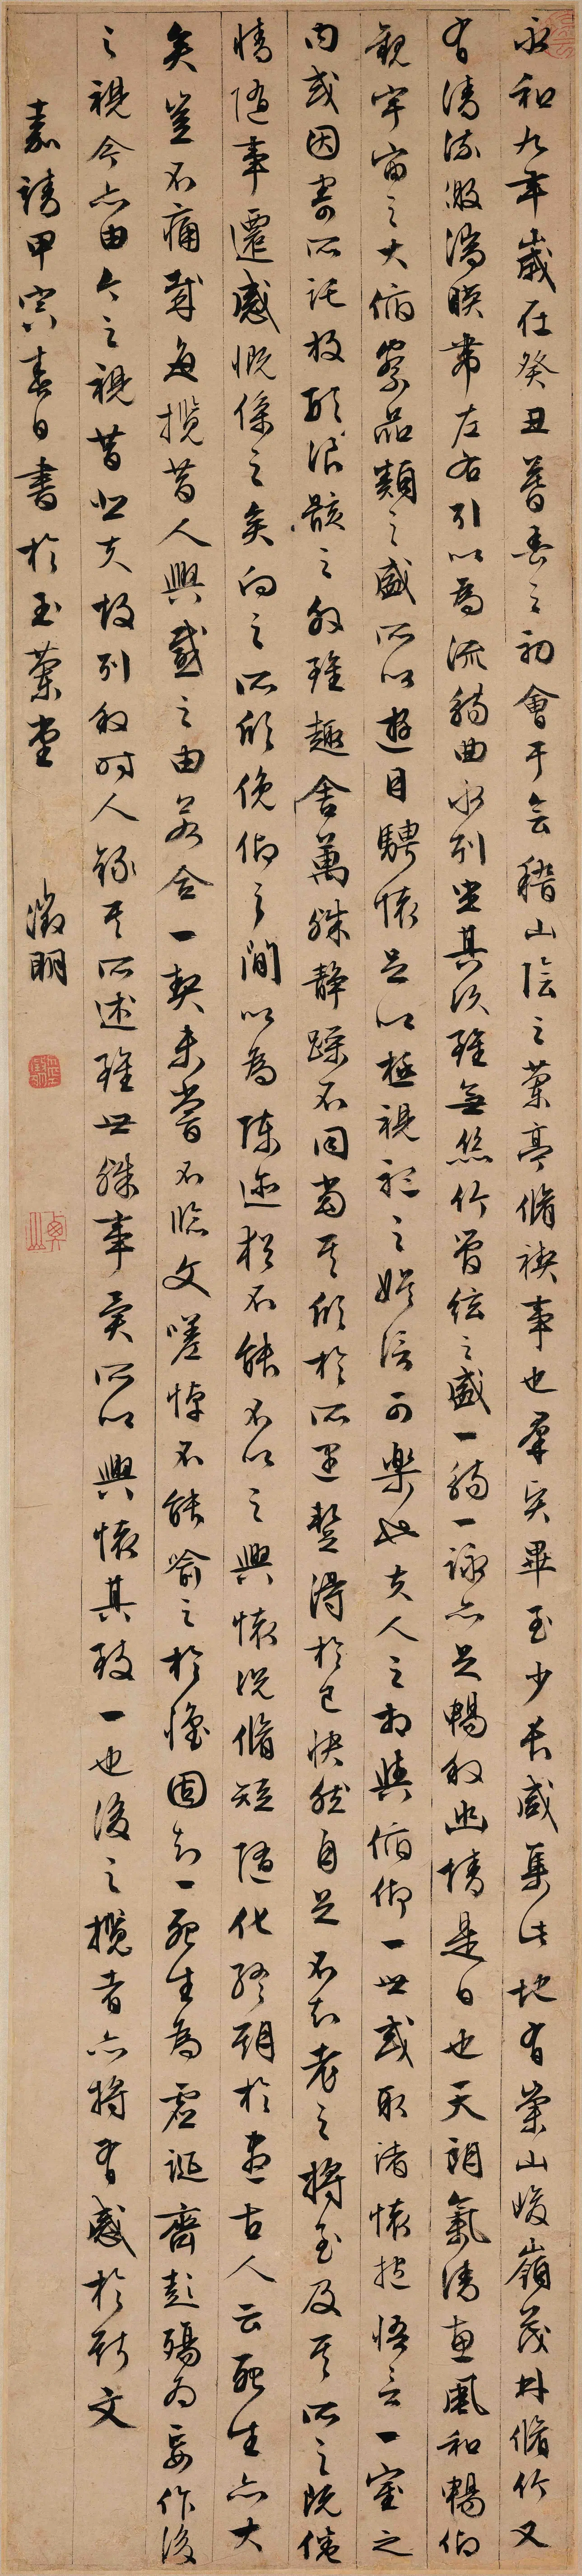 永和九年歲在癸丑暮春之初會于會稽山陰之蘭亭脩禊事也羣賢畢至少長咸集此地有崇山峻嶺茂林脩竹又
有清流激湍暎帶左右引以為流觴曲水列坐其次雖無絲竹管絃之盛一觴一詠亦足暢敘幽情是日也天朗氣清惠風和暢仰
觀宇宙之大俯察品類之盛所以遊目騁懷足以極視聽之娛信可樂也夫人之相與俯仰一世或取諸懷抱悟言一室之
內或因寄所託放形浪骸之外雖趣舍萬殊靜躁不同當其欣於所遇蹔得於己快然自足不知老之將至及其所之既惓
情隨事遷感慨係之矣向之所欣俛仰之間以為陳迹猶不能不以之興懷況脩短隨化終期於盡古人云死生亦大
矣豈不痛哉每攬昔人興感之由若合一契未嘗不臨文嗟悼不能喻之於懷固知一死生為虛誕齊彭殤為妄作後
之視今亦由今之視昔悲夫故列敘時人錄其所述雖世殊事異所以興懷其致一也後之攬者亦將有感於斯文
嘉靖甲寅春日書於玉蘭堂 徵明